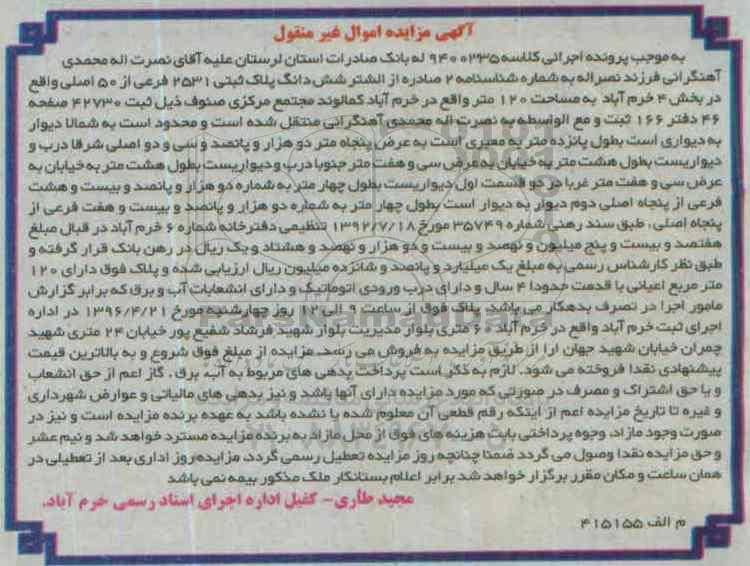 آگهی مزایده اموال غیر منقول
به موجب پرونده اجرائی کلاسه ۹۴۰۰۲۳۵ له بانک صادرات استان لرستان علیه آقای نصرت اله محمدی
آهنگرانی فرزند نصراله به شماره شناسنامه ۲ صادره از الشتر شش دانگ پلاک ثبتی ۲۵۳۱ فرعی از ۵۰ اصلی واقع
در بخش ۴ خرم آباد به مساحت ۱۲۰ متر واقع در خرم آباد کمالوند مجتمع مرکزی صنوف ذیل ثبت ۴۲۷۳۰ صفحه
۴۶ دفتر ۱۶۶ ثبت و مع الواسطه به نصرت اله محمدی آهنگرانی منتقل شده است و محدود است به شمالا دیوار
به دیواری است بطول پانزده متر به معبری است به عرض پنجاه متر دو هزار و پانصد و سی و دو اصلی شرقا درب و
دیواریست بطول هشت متر به خیابان به عرض سی و هفت متر جنوبا درب و دیواریست بطول هشت متر به خیابان به
عرض سی و هفت متر غربا در دو قسمت اول دیواریست بطول چهار متر به شماره دو هزار و پانصد و بیست و هشت
فرعی از پنجاه اصلی دوم دیوار به دیوار است بطول چهار متر به شماره دو هزار و پانصد و بیست و هفت فرعی از
پنجاه اصلی ، طبق سند رهنی شماره ۳۵۷۴۹ مورخ ۱۳۹۲/۷/۱۸ تنظیمی دفترخانه شماره ۶ خرم آباد در قبال مبلغ
هفتصد و بیست و پنج میلیون و نهصد و بیست و دو هزار و نهصد و هشتاد و یک ریال در رهن بانک قرار گرفته و
طبق نظر کارشناس رسمی به مبلغ یک میلیارد و پانصد و شانزده میلیون ریال ارزیابی شده و پلاک فوق دارای ۱۲۰
متر مربع اعیانی با قدمت حدودا ۴ سال و دارای درب ورودی اتوماتیک و دارای انشعابات آب و برق که برابر گزارش
مامور اجرا در تصرف بدهکار می باشد. پلاک فوق از ساعت ۹ الی ۱۲ روز چهارشنبه مورخ ۱۳۹۶/۴/۲۱ در اداره
اجرای ثبت خرم آباد واقع در خرم آباد ۶۰ متری بلوار مدیریت بلوار شهید فرشاد شفیع پور خیابان ۲۴ متری شهید
چمران خیابان شهید جهان آرا از طریق مزایده به فروش می رسد. مزایده از مبلغ فوق شروع و به بالاترین قیمت
پیشنهادی نقدا فروخته می شود. لازم به ذکر است پرداخت بدهی های مربوط به آب، برق ، گاز اعم از حق انشعاب
و یا حق اشتراک و مصرف در صورتی که مورد مزایده دارای آنها باشد و نیز بدهی های مالیاتی و عوارض شهرداری
و غیره تا تاریخ مزایده اعم از اینکه رقم قطعی آن معلوم شده یا نشده باشد به عهده برنده مزایده است و نیز در
صورت وجود مازاد، وجوه پرداختی بابت هزینه های فوق از محل مازاد به برنده مزایده مسترد خواهد شد و نیم عشر
و حق مزایده نقدا وصول می گردد ضمنا چنانچه روز مزایده تعطیل رسمی گردد، مزایده روز اداری بعد از تعطیلی در
همان ساعت و مکان مقرر برگزار خواهد شد برابر اعلام بستانکار ملک مذکور بیمه نمی باشد
مجید طآری - کفیل اداره اجرای اسناد رسمی خرم آباد.
م الف ۴۱۵۱۵۵